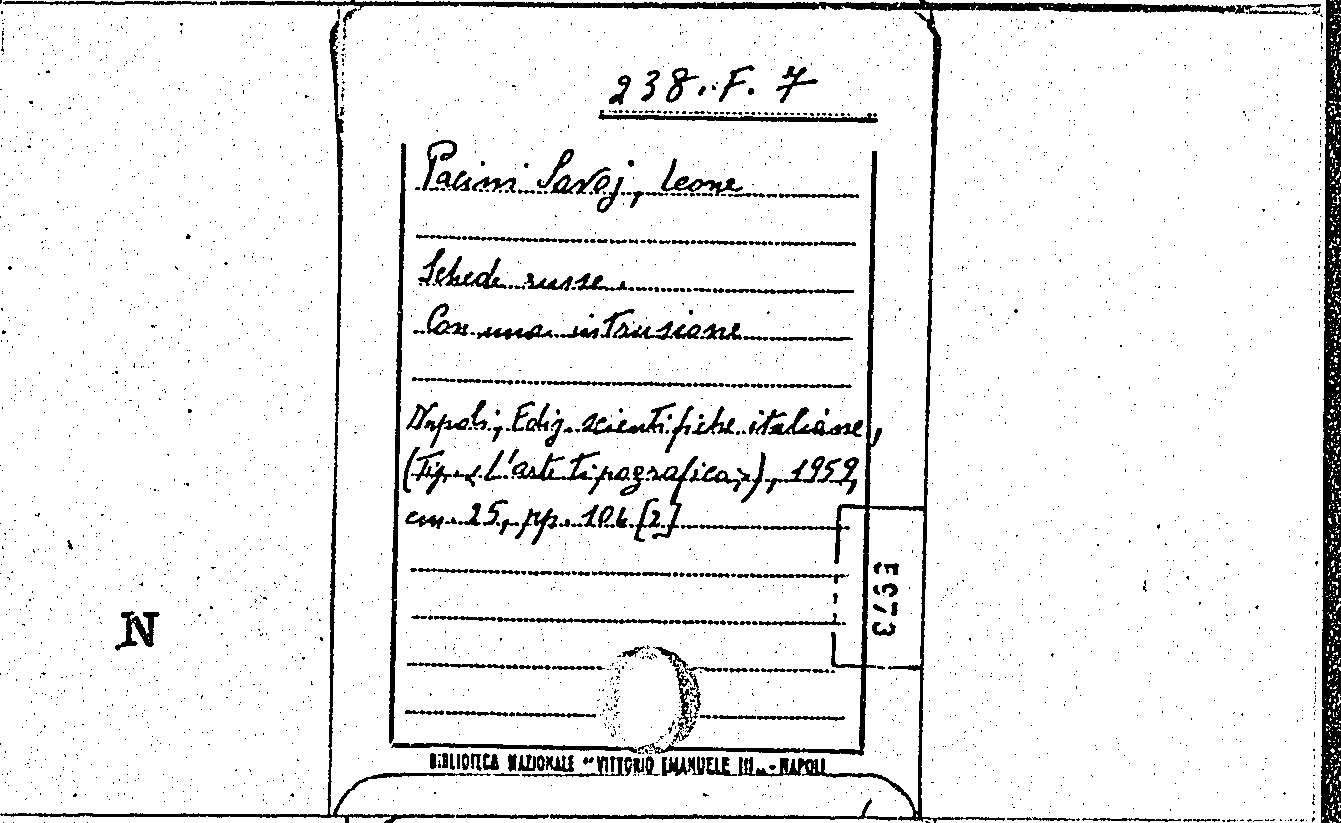 238.F.7
Pacini Savoj, Leone
Schede russe.
Con una intrusione
Napoli, Ediz. scientifiche italiane,
(Tip. «L'arte tipografica»), 1959,
cm. 25, pp. 106 [2]
N
BIBLIOTECA NAZIONALE "VITTORIO EMANUELE III" - NAPOLI